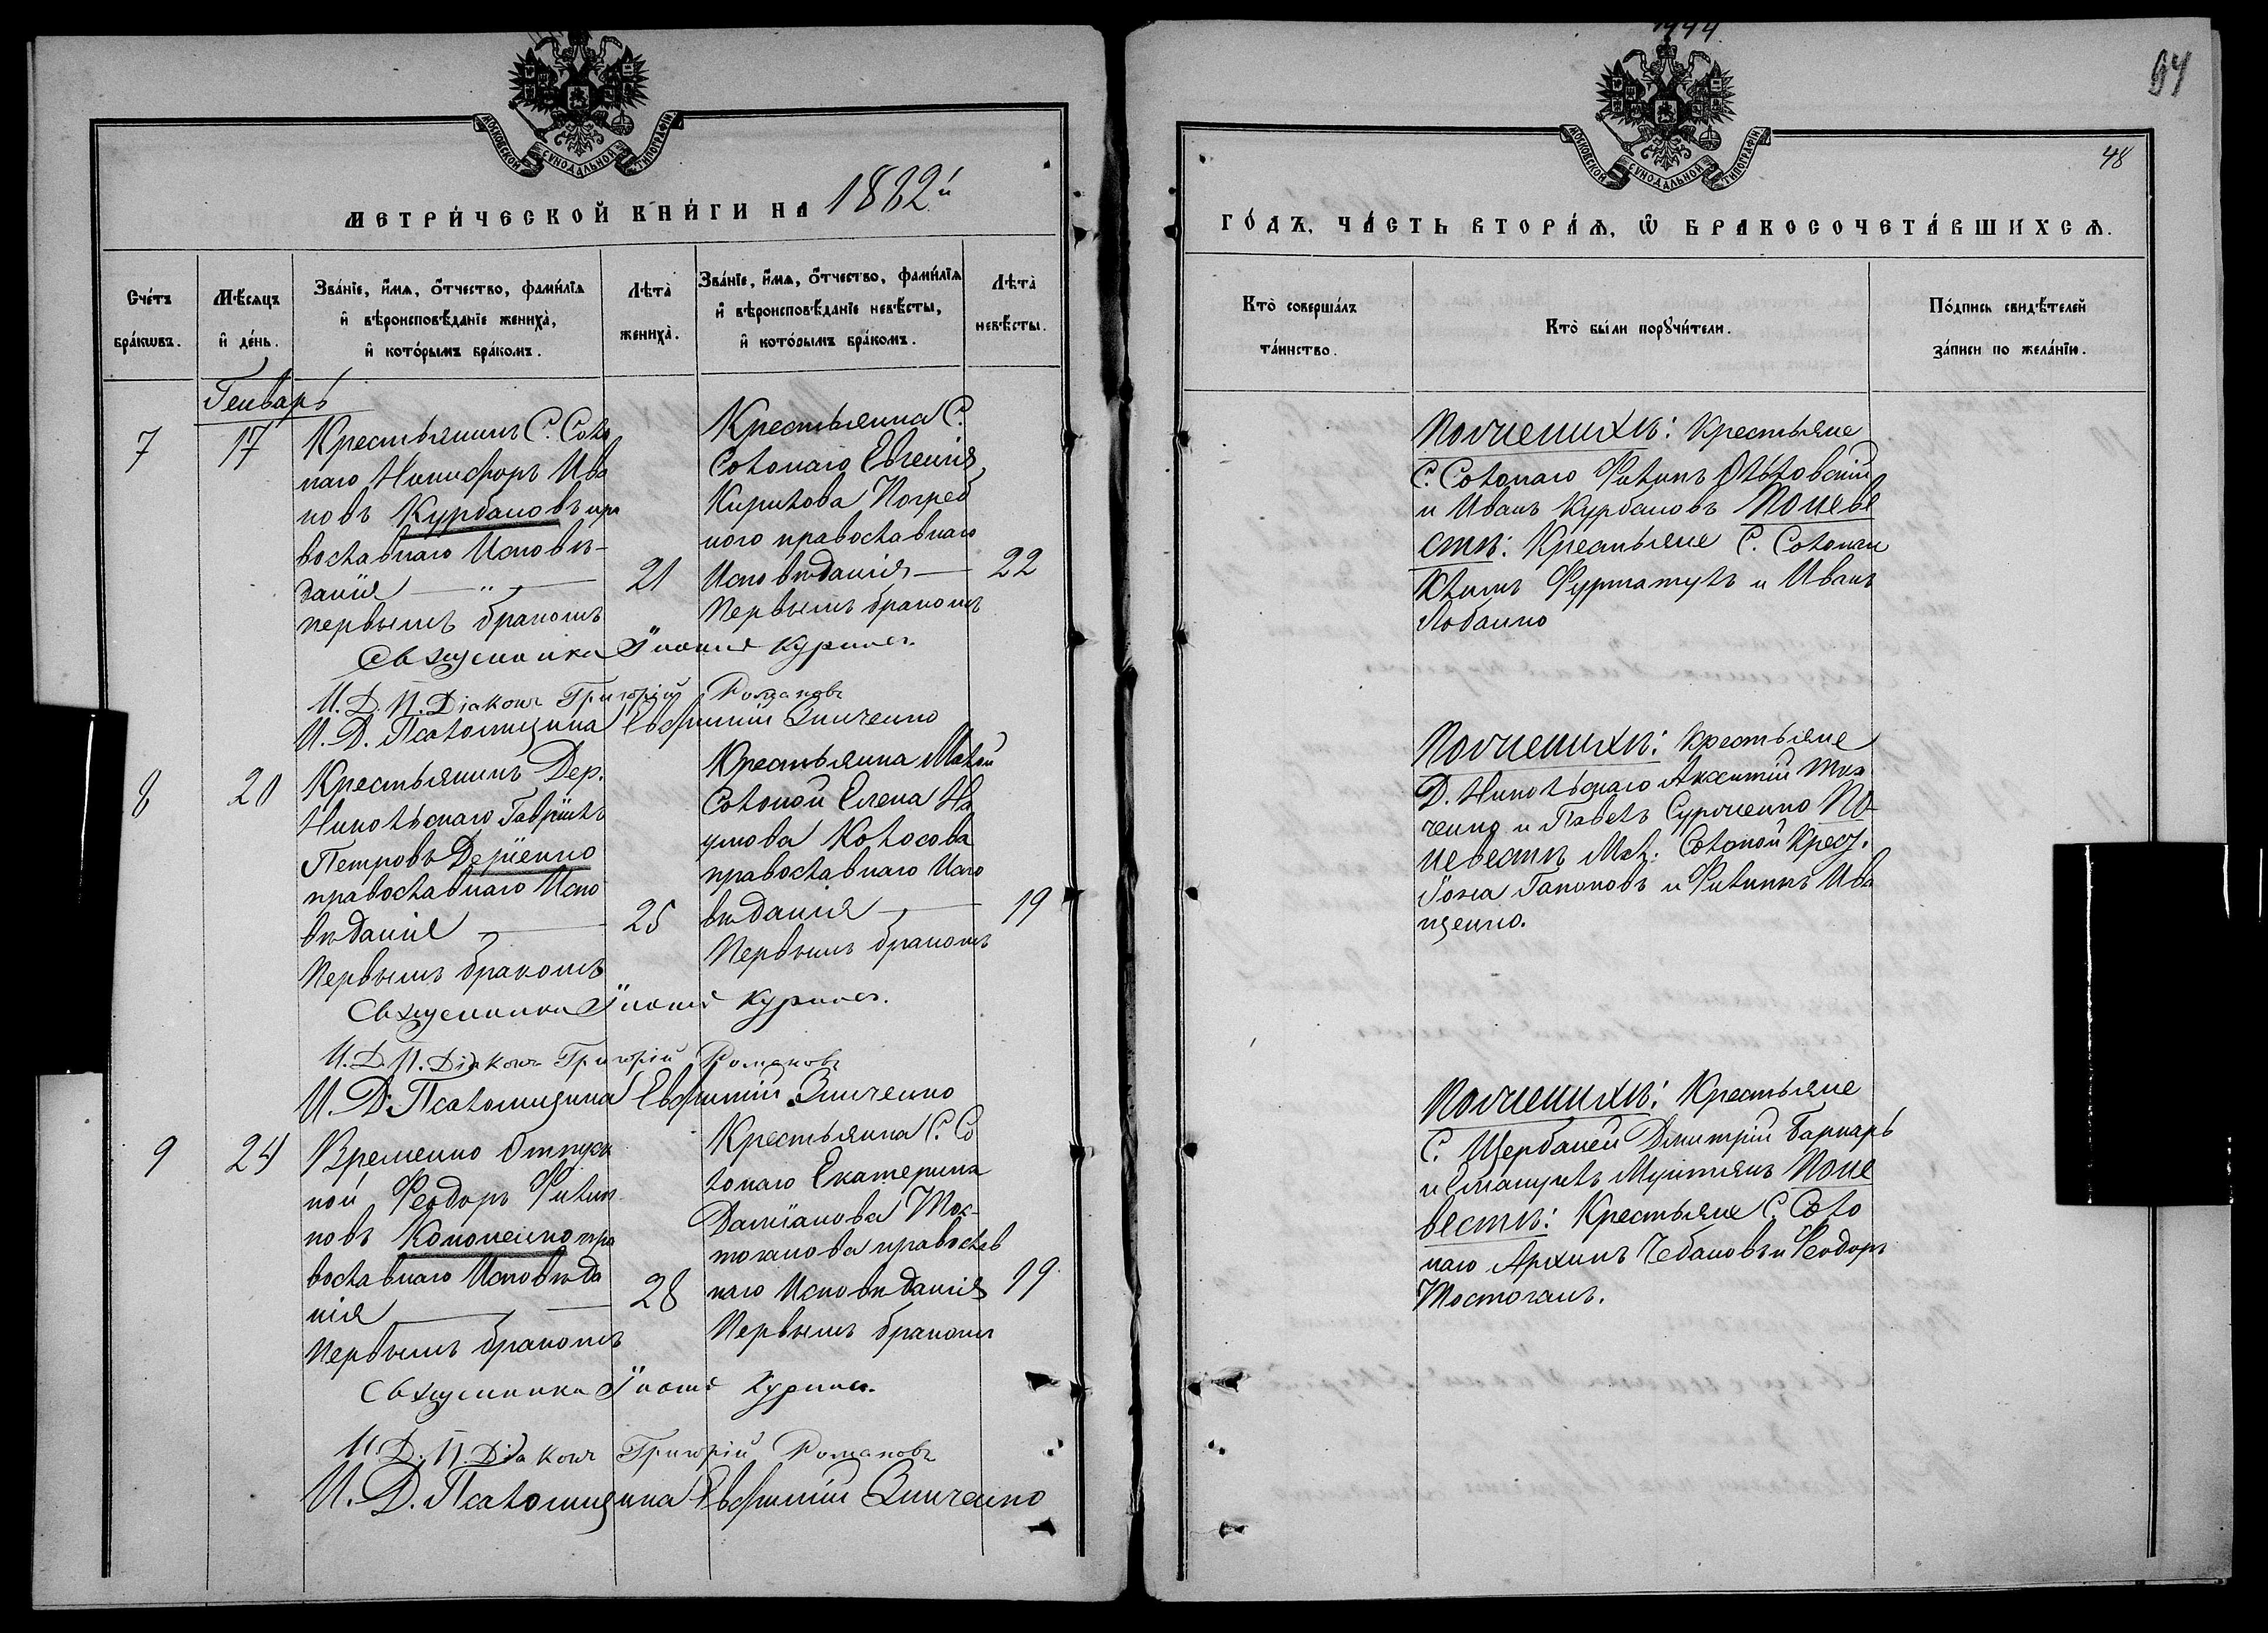 МОСКОВСКОЙ СѴНОДАЛЬНОЙ ТИПОГРАФІИ
МЕТРИ́ЧЕСКОЙ КНИ́ГИ НА 1882й
Сче́тъ бра́кѡвъ.
Мѣ́сяцъ и҆ де́нь.
Зва́нїе, и҆́мѧ, ѻ҆́тчество, фами́лїѧ
и҆ вѣроисповѣ́данїе жениха̀,
и҆ кото́рымъ бра́комъ.
Лѣта̀ жениха̀.
Зва́нїе, и҆́мѧ, ѻ҆́тчество, фами́лїѧ
и҆ вѣроисповѣ́данїе невѣ́сты,
и҆ кото́рымъ бра́комъ.
Лѣта̀ невѣ́сты.
Генварь
7
17
Крестьянинъ С. Соло
наго Никифоръ Ива
новъ Курбановъ пра
вославнаго Исповѣ-
данія
первымъ бракомъ
21
Крестьянка С.
Солонаго Евгенія
Кирилова Погреб
ного православнаго
Исповѣданія
Первымъ бракомъ
22
Священникъ Іоаннъ Куриле
И. Д. П. Діаконъ Григорій Романовъ
И. Д. Псаломщика Евфимій Зинченко
8
20
Крестьянинъ Дер.
Никольскаго Гавріилъ
Петровъ Деріенко
православнаго Испо
вѣданія
Первымъ бракомъ
25
Крестьянка Малой
Солоной Елена На
умова Колосова
православнаго Испо
вѣданія
Первымъ бракомъ
19
Священникъ Іоаннъ Куриле
И. Д. П. Діаконъ Григорій Романовъ
И. Д. Псаломщика Евфимій Зинченко
9
24
Временно Отпуск
ной Феодоръ Филип
повъ Кононенко пра
вославнаго Исповѣда
нія
Первымъ бракомъ
28
Крестьянка С. Со
лонаго Екатерина
Даміанова Мос-
тоганова православ
наго Исповѣданія
Первымъ бракомъ
19
Священникъ Іоаннъ Куриле
И. Д. П. Діаконъ Григорій Романовъ
И. Д. Псаломщика Евфимій Зинченко
64
48
МОСКОВСКОЙ СѴНОДАЛЬНОЙ ТИПОГРАФІИ
ГО́ДЪ, ЧА́СТЬ ВТОРА́Ѧ, Ѡ҆ БРАКОСОЧЕТА́ВШИХСѦ.
Кто̀ соверша́лъ та́инство.
Кто̀ бы́ли порꙋчи́тели.
По́дпись свидѣ́телей за́писи по жела́нїю.
По женихѣ: Крестьяне
С. Солонаго Филипъ
и Иванъ Курбановъ По неве
стѣ: Крестьяне С. Солонаго
и Иванъ
Лобанко
По женихѣ: Крестьяне
Д. Никольскаго Авксентій Тка
ченко и Павелъ По
невестѣ Мал. Солоной Крест.
Гапоновъ и Филипъ Ива
щенко.
По женихѣ: Крестьяне
С. Щербаней Дмитрій Барнаръ
и Мунтянъ По не
вестѣ: Крестьяне С. Соло
наго Архипъ Чебановъ и Феодоръ
Мостоганъ.